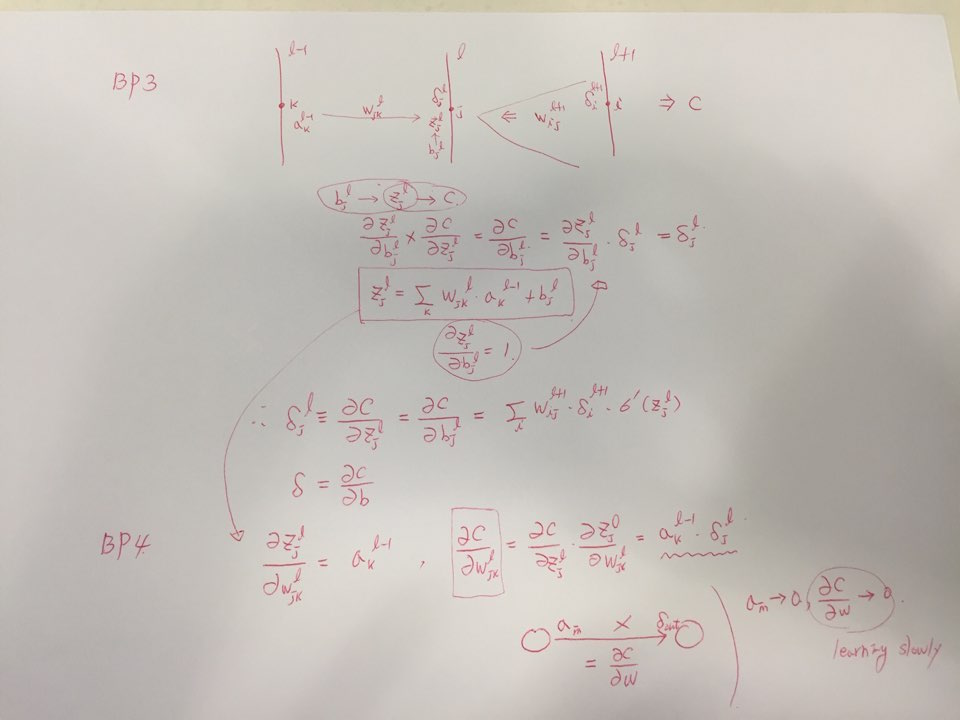 BP3
l-1 l l+1
k a_k^{l-1} w_{jk}^l → δ_j^l z_j^l ↑ b_j^l j ⇐ w_{ij}^{l+1} δ_i^{l+1} i ⇒ C
b_j^l → z_j^l → C.
∂z_j^l/∂b_j^l × ∂C/∂z_j^l = ∂C/∂b_j^l = ∂z_j^l/∂b_j^l · δ_j^l = δ_j^l
z_j^l = Σ_k w_{jk}^l · a_k^{l-1} + b_j^l
∂z_j^l/∂b_j^l = 1.
∴ δ_j^l ≡ ∂C/∂z_j^l = ∂C/∂b_j^l = Σ_i w_{ij}^{l+1} · δ_i^{l+1} · σ'(z_j^l)
δ = ∂C/∂b
BP4
∂z_j^l/∂w_{jk}^l = a_k^{l-1} , ∂C/∂w_{jk}^l = ∂C/∂z_j^l · ∂z_j^l/∂w_{jk}^l = a_k^{l-1} · δ_j^l
a_in × δ_out
= ∂C/∂w
a_in → 0, ∂C/∂w → 0.
learning slowly